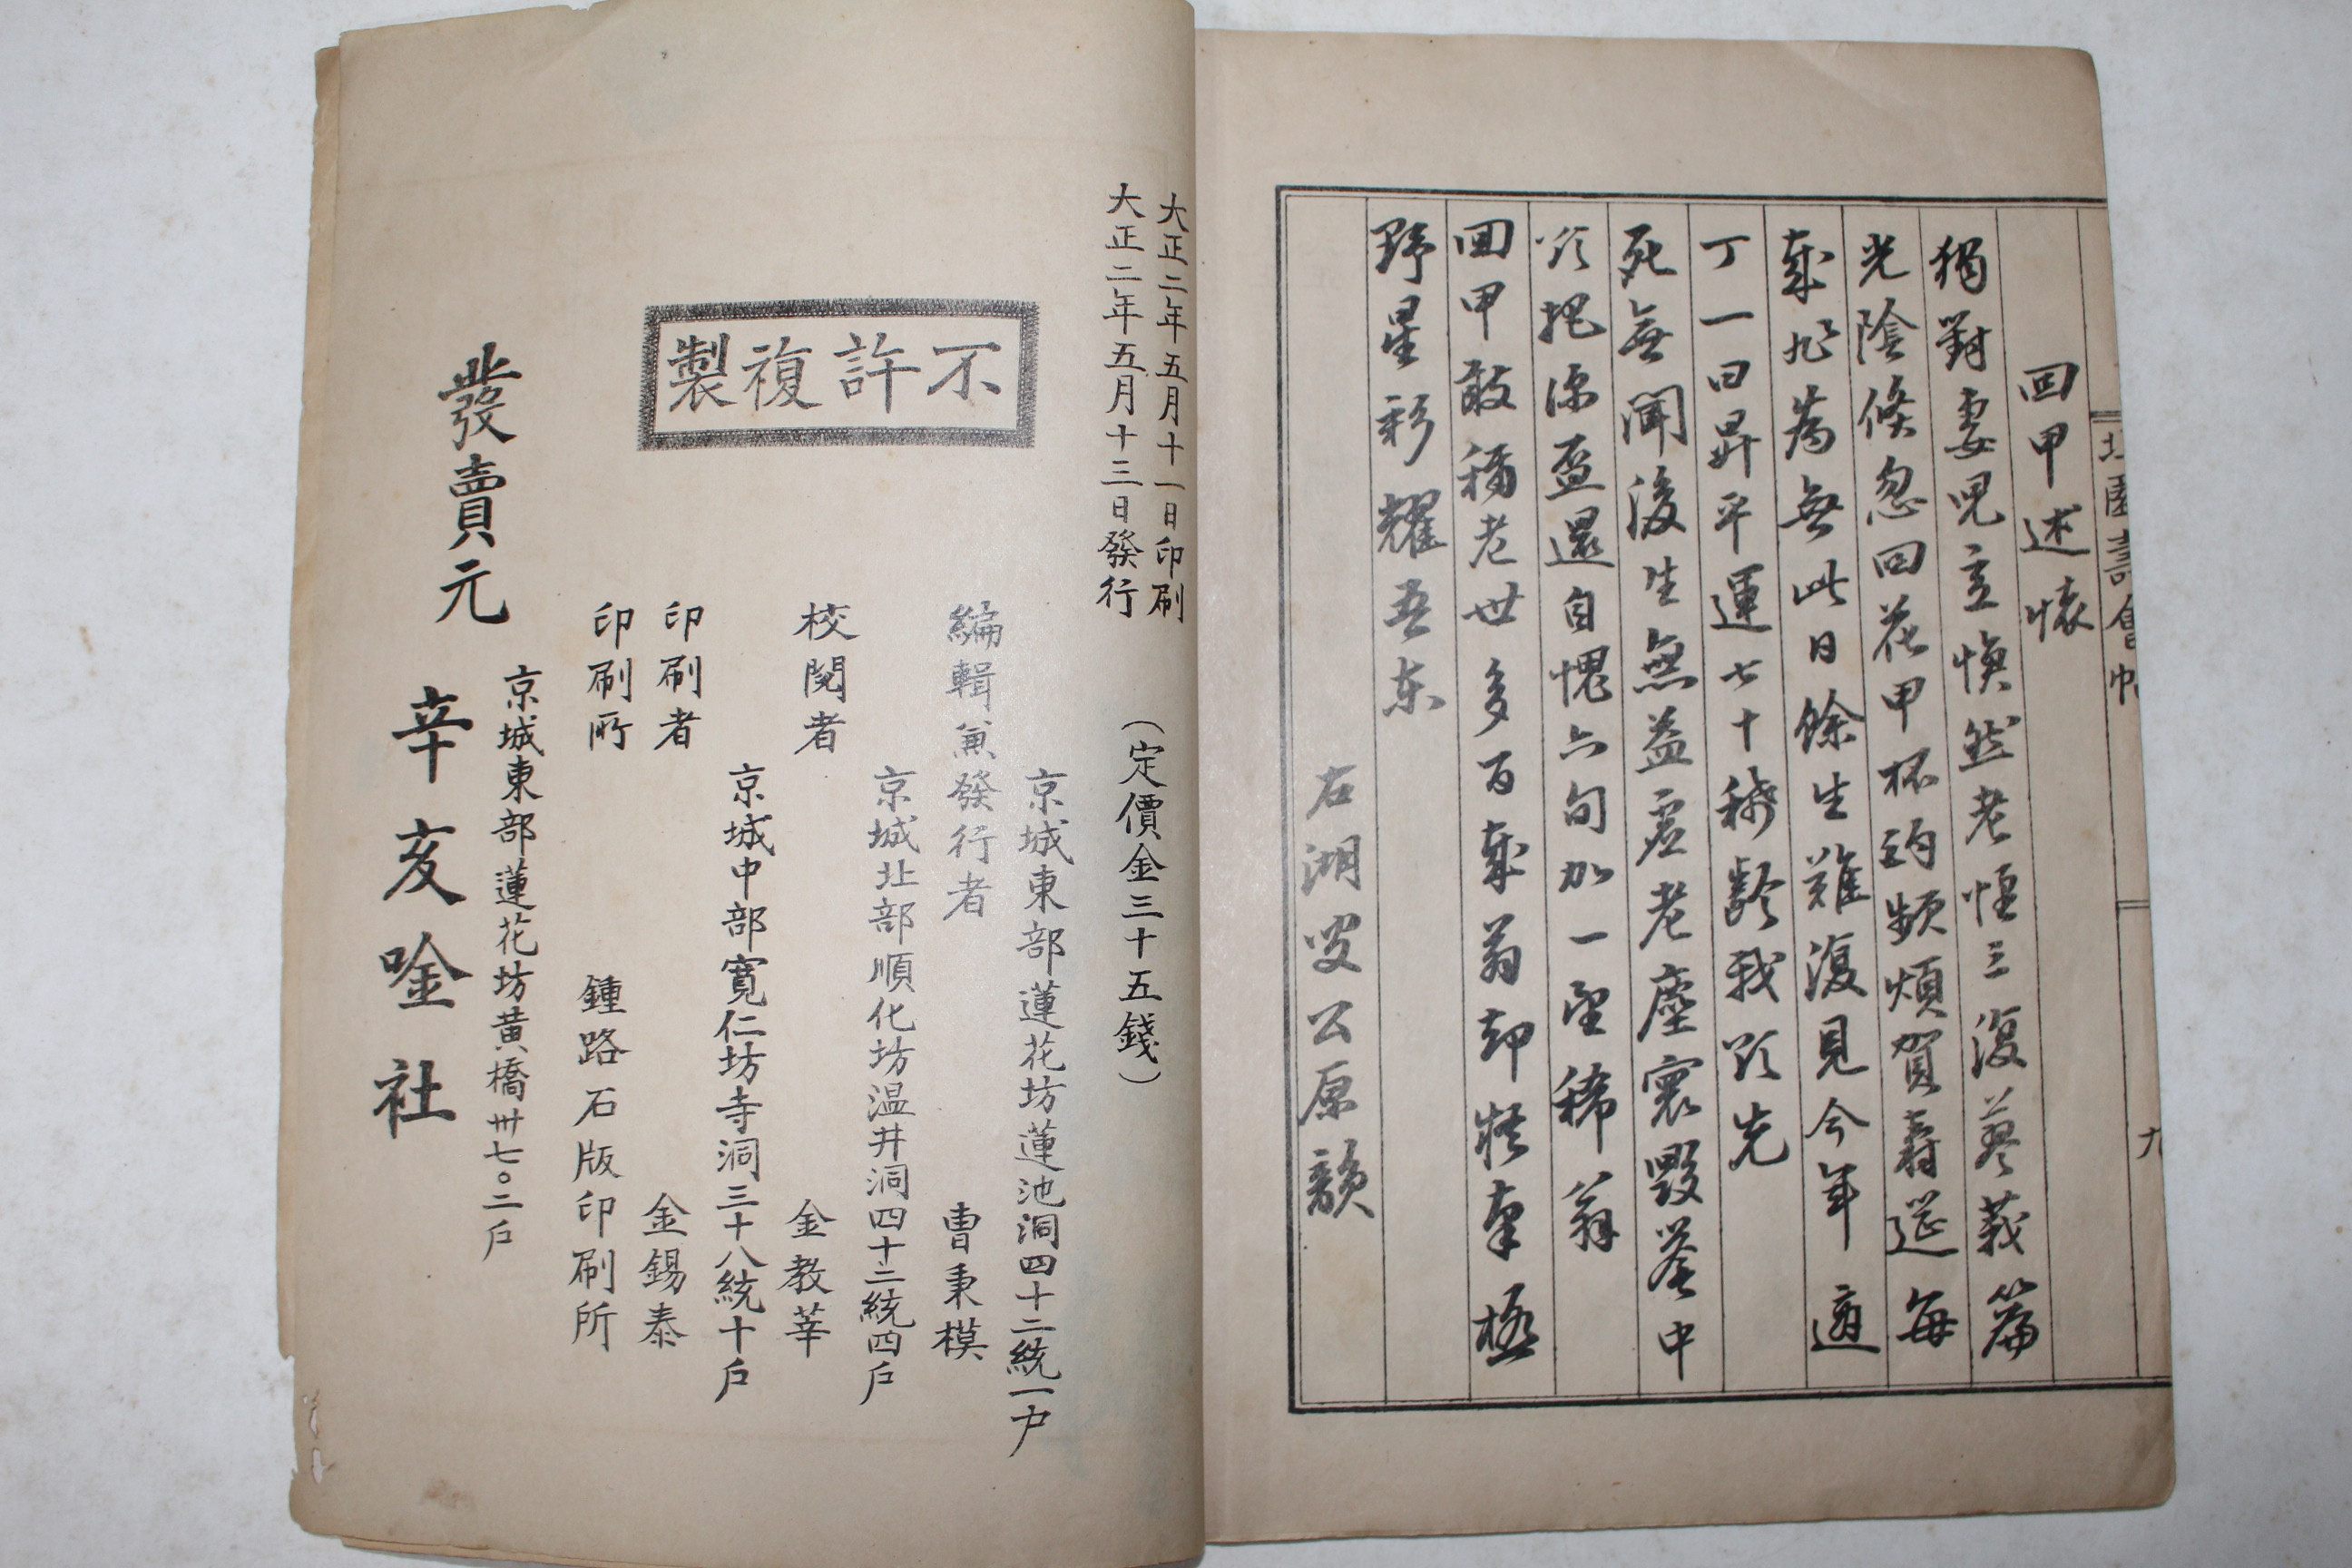 園壽會帖
九
回甲述懷
獨對妻兒立愴然老懷三復蓼莪篇
光陰倏忽回花甲杯酌頻煩賀壽筵每
歲非為無此日餘生難復見今年適
丁一日昇平運七十稀齡我以先
死無聞後生無益虛老塵寰毀譽中
回甲敢稱老世多百歲翁却將奎極
野星彩耀吾東
石湖叟公原韻
大正二年五月十一日印刷
大正二年五月十三日發行
(定價金三十五錢)
不許複製
京城東部蓮花坊蓮池洞四十二統一戶
編輯兼發行者 曹秉模
京城北部順化坊温井洞四十二統四戶
校閱者 金教莘
京城中部寬仁坊寺洞三十八統十戶
印刷者 金錫泰
印刷所 鍾路石版印刷所
京城東部蓮花坊黃橋卅七○二戶
發賣元 辛亥唫社